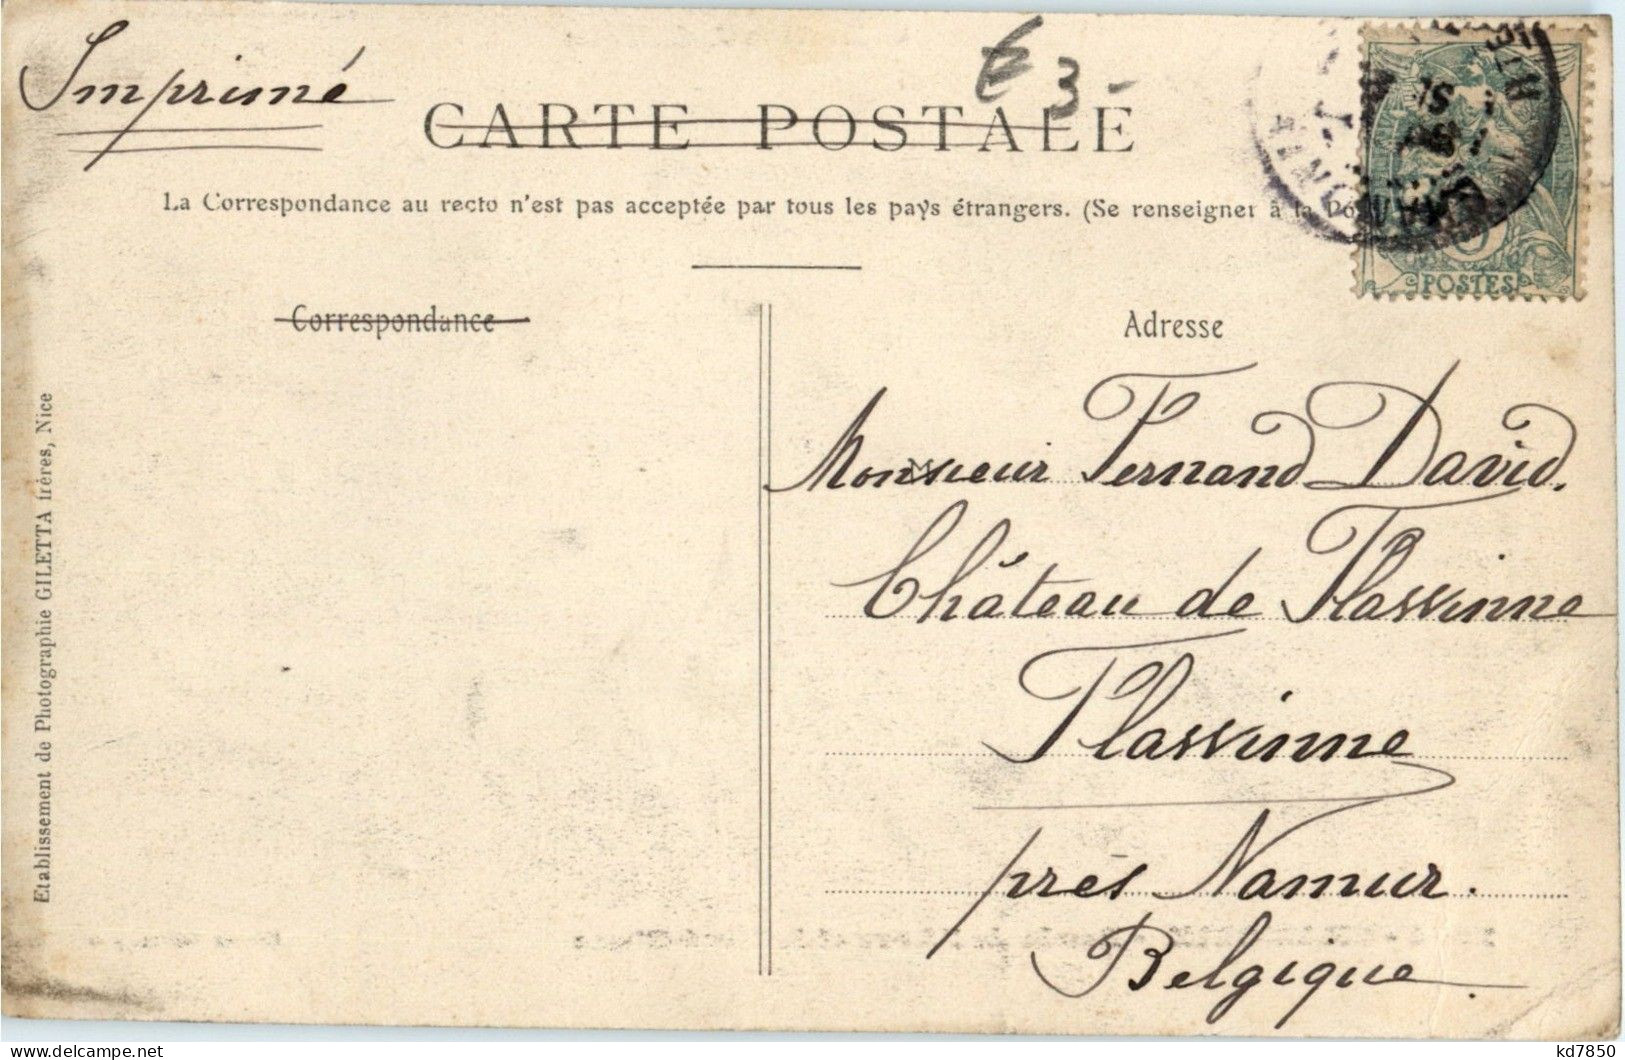 Imprimé
E 3 -
CARTE POSTALE
La Correspondance au recto n'est pas acceptée par tous les pays étrangers. (Se renseigner à la
POSTES
Correspondance
Adresse
Monsieur Fernand David.
Château de Flassinne
Flassinne
près Namur.
Belgique.
Etablissement de Photographie GILETTA frères, Nice
kd7850